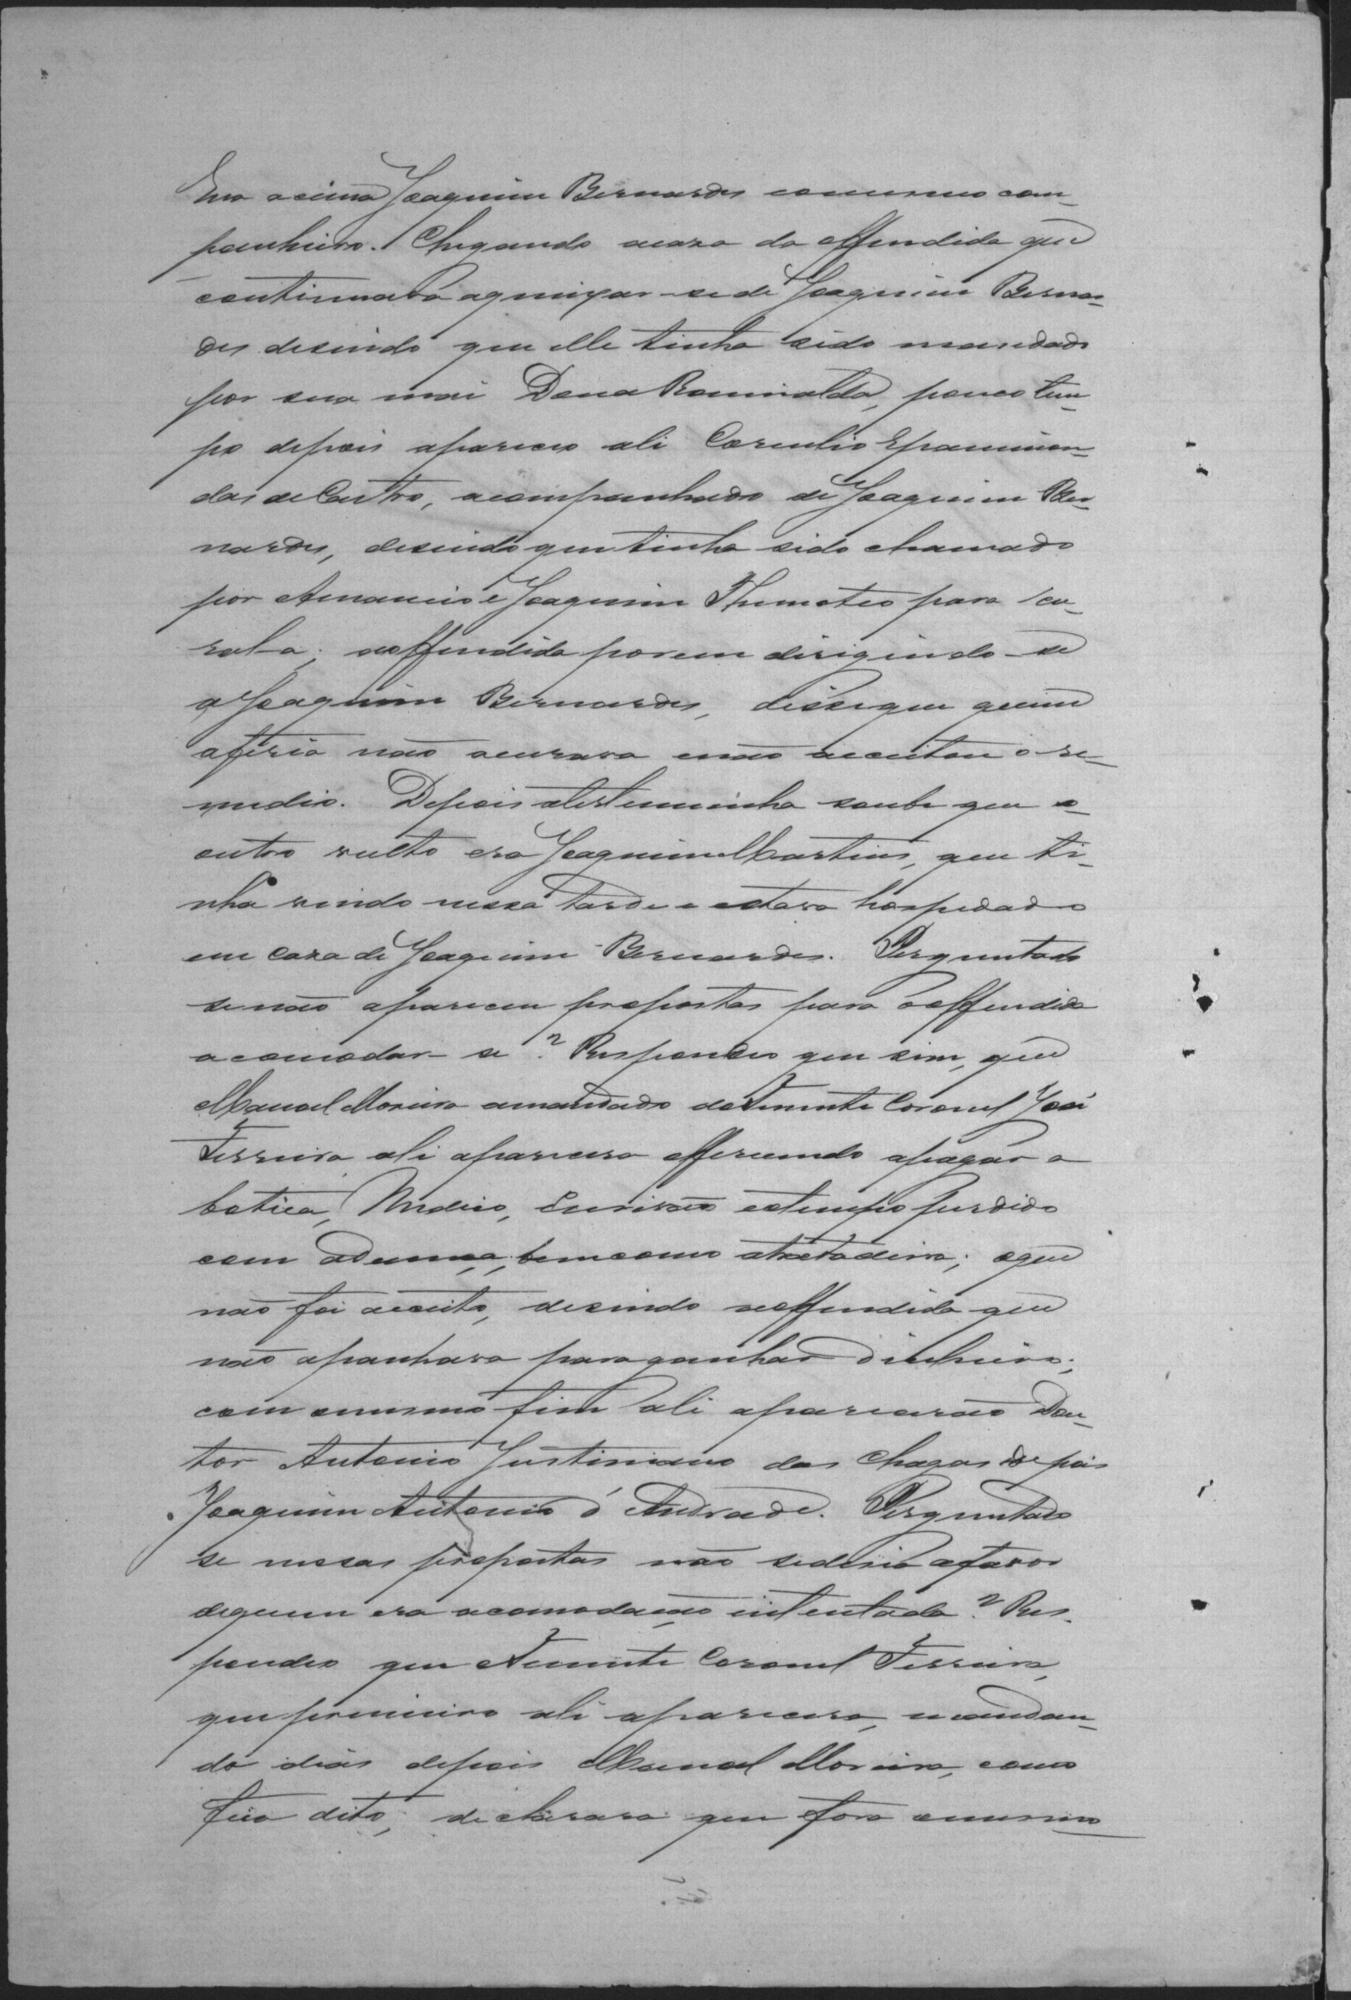 Era acima Joaquim Bernardes com seu com-
panheiro. Chegando acaza da offendida que
continuava aqueixar-se de Joaquim Bernar-
des desindo que elle tinha sido mandado
por sua mai Dona Romualda, pouco tem-
po depois apareceo ali Cornelio Epaminon-
das de Castro, acompanhado de Joaquim Ber-
nardes, desindo que tinha sido chamado
por Amancio e Joaquim Thimoteo para cu-
ral-a; aoffendida porem dirigindo-se
a Joaquim Bernardes, disse que quem
aferia não acurava enão aceitou o re-
medio. Depois atestemunha soube que o
outro vulto era Joaquim Martins, que ti-
nha vindo nessa tarde e estava hospedado
em caza de Joaquim Bernardes. Perguntado
se não apareceu propostas para aoffendida
acomodar-se? Respondeo que sim, que
Manoel Moreira amandado do Tenente Coronel José
Ferreira ali aparecera offerecendo apagar a
botica, Medico, Escrivão eotempo perdido
com adoença, bem como atratadeira; oque
não foi aceito, desindo aoffendida que
não apanhara para ganhar dinheiro;
com omesmo fim ali aparecerão Dou-
tor Antonio Justiniano das Chagas depois
Joaquim Antonio d'Andrade. Perguntado
se nessas propostas não sedisia afavor
dequem era acomodação intentada? Res-
pondeo que o Tenente Coronel Ferreira,
que primeiro ali aparecera, mandan-
do dias depois Manoel Moreira, como
fica dito, declarara que fora omesmo